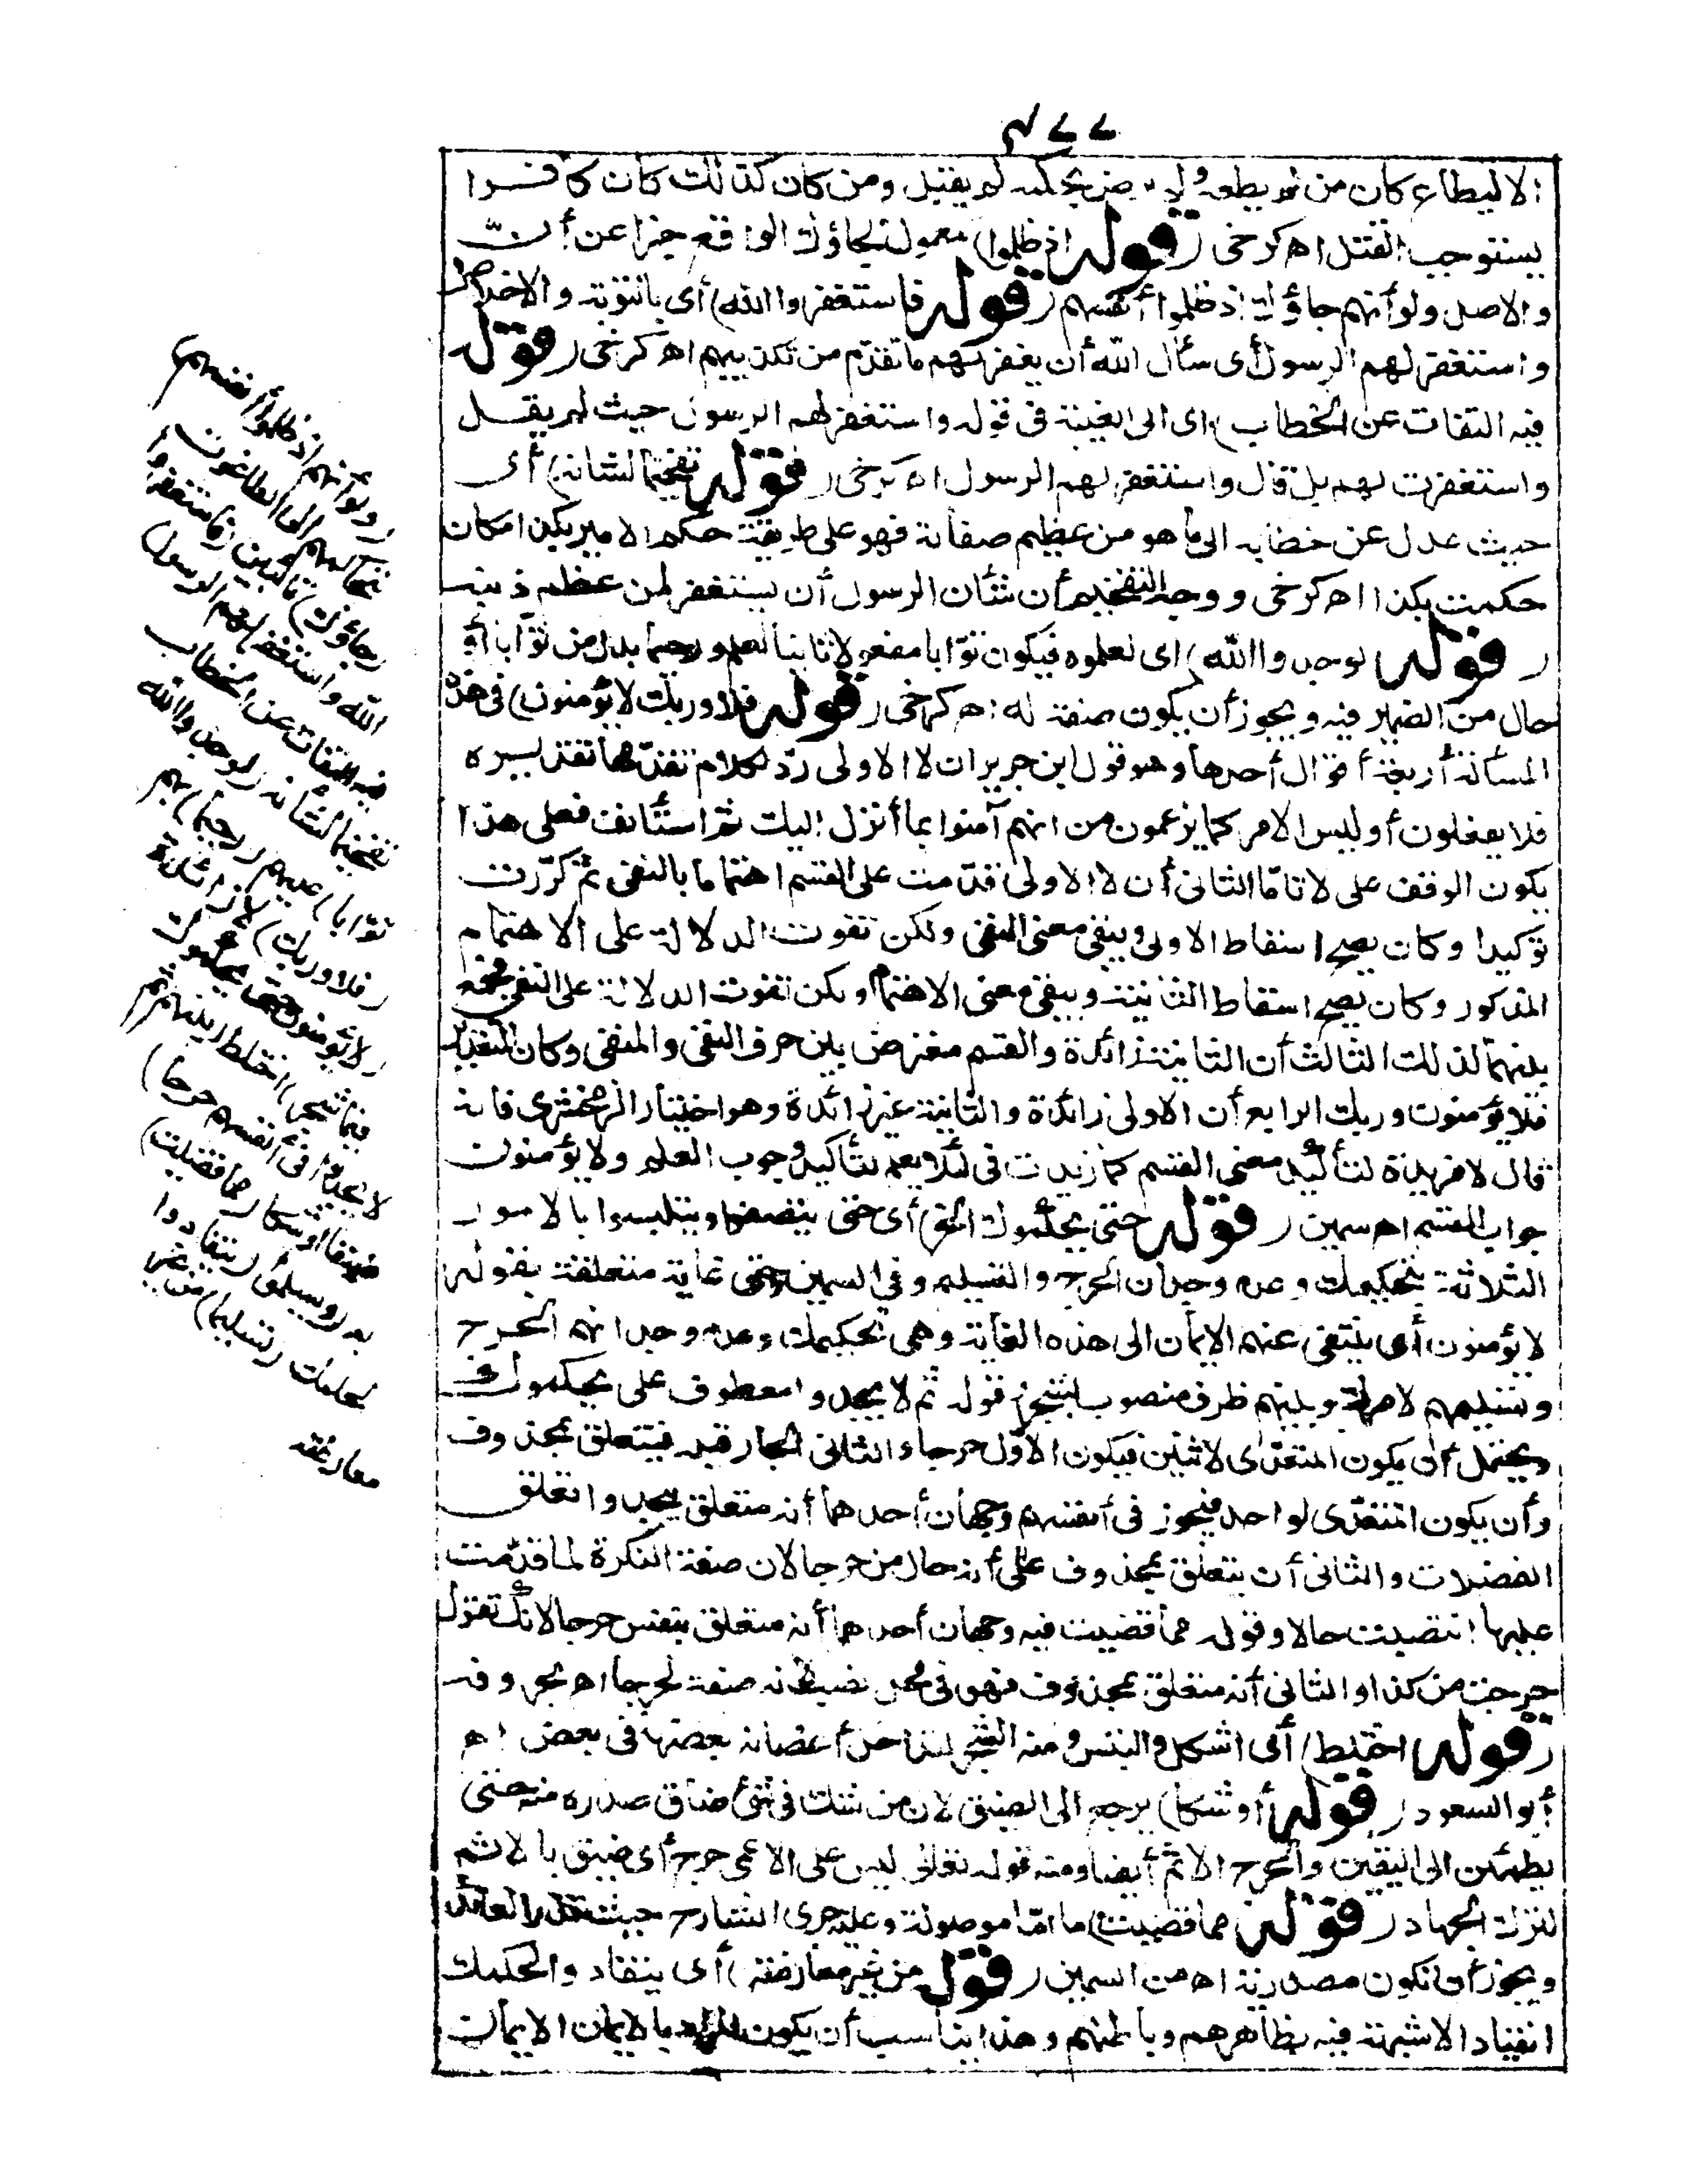 ٤٧٧
الا ليطاع كان من لم يطعه ولم يرض بحكمه لم يقبل ومن كان كذلك كان كافرا
يستوجب القتل اه كرخى (قوله اذ ظلموا) معمول لجاؤك الواقع خبرا عن أنّ
والاصل ولو أنهم جاؤك اذ ظلموا أنفسهم (قوله فاستغفروا الله) أى بالتوبة والاخلاص
واستغفر لهم الرسول أى سأل الله أن يغفر لهم ما تقدّم من تكذيبهم اه كرخى (قوله
فيه التفات عن الخطاب) اى الى الغيبة فى قوله واستغفر لهم الرسول حيث لم يقل
واستغفرت لهم بل قال واستغفر لهم الرسول اه كرخى (قوله تفخيما لشانه) أى
حيث عدل عن خطابه الى ما هو من عظيم صفاته فهو على طريقة حكم الامير بكذا مكان
حكمت بكذا اه كرخى ووجه التفخيم أن شأن الرسول أن يستغفر لمن عظم ذنبه
(قوله لوجدوا الله) اى لعلموه فيكون توّابا مفعولا ثانيا لعلم ورحيما بدل من توّابا أو
حال من الضمير فيه ويجوز أن يكون صفة له اه كرخى (قوله فلا وربك لا يؤمنون) فى هذه
المسألة أربعة أقوال أحدها وهو قول ابن جرير ان لا الاولى ردّ لكلام تقدّمها تقديره
فلا يعقلون أو ليس الامر كما يزعمون من انهم آمنوا بما أنزل اليك ثم استأنف فعلى هذا
يكون الوقف على لا تامّا الثانى أن لا الاولى قدّمت على القسم اهتماما بالنفى ثم كرّرت
توكيدا وكان يصح اسقاط الاولى ويبقى معنى النفى ولكن تفوت الدلالة على الاهتمام
المذكور وكان يصح اسقاط الثانية ويبقى معنى الاهتمام ولكن تفوت الدلالة على النفى فجمع
بينهما لذلك الثالث أن الثانية زائدة والقسم معترض بين حرف النفى والمنفى وكان التقدير
فلا يؤمنون وربك الرابع أن الاولى زائدة والثانية غير زائدة وهو اختيار الزمخشرى فانه
قال لا مزيدة لتأكيد معنى القسم كما زيدت فى لئلا يعلم لتأكيد وجوب العلم ولا يؤمنون
جواب القسم اه سمين (قوله حتى يحكّموك الخ) أى حتى يتصفوا ويتلبسوا بالامور
الثلاثة تحكيمك وعدم وجدان الحرج والتسليم وفى السمين وحتى غاية متعلقة بقوله
لا يؤمنون أى ينتفى عنهم الايمان الى هذه الغاية وهى تحكيمك وعدم وجدانهم الحرج
وتسليمهم لامرك وبينهم ظرف منصوب بشجر قوله ثم لا يجدوا معطوف على يحكموك
ويحتمل أن يكون المتعدّى لاثنين فيكون الاوّل حرجا والثانى الجار قبله فيتعلق بمحذوف
وأن يكون المتعدّى لواحد فيجوز فى أنفسهم وجهان أحدهما أنه متعلق بيجدوا تعلق
الفضلات والثانى أن يتعلق بمحذوف على أنه حال من حرجا لان صفة النكرة لما قدّمت
عليها انتصبت حالا وقوله مما قضيت فيه وجهان أحدهما أنه متعلق بنفس حرجا لانك تقول
حرجت من كذا والثانى أنه متعلق بمحذوف فهو فى محل نصب لانه صفة لحرجا اه بحروفه
(قوله اختلط) أى اشكل والتبس ومنه الشجر لتداخل أغصانه بعضها فى بعض اه
أبو السعود (قوله أو شكا) يرجع الى الضيق لان من شك فى شئ ضاق صدره منه حتى
يطمئن الى اليقين والحرج الاثم أيضا ومنه قوله تعالى ليس على الاعمى حرج أى ضيق بالاثم
لترك الجهاد (قوله مما قضيت) ما امّا موصولة وعليه جرى الشارح حيث قدّر العائد
ويجوز أن تكون مصدرية اه من السمين (قوله من غير معارضة) أى ينقاد والحكمك
انقياد الا شبهة فيه بظاهرهم وباطنهم وهذا يناسب أن يكون المراد بالايمان الايمان
(ولو أنهم اذ ظلموا أنفسهم)
بتحاكمهم الى الطاغوت
(جاؤك) تائبين (فاستغفروا
الله واستغفر لهم الرسول)
فيه التفات عن الخطاب
تفخيما لشأنه (لوجدوا الله
توّابا) عليهم (رحيما) بهم
(فلا وربك) لا زائدة
(لا يؤمنون حتى يحكّموك
فيما شجر) اختلط (بينهم ثم
لا يجدوا فى أنفسهم حرجا)
ضيقا أو شكا (مما قضيت)
به (ويسلموا) ينقادوا
لحكمك (تسليما) من غير
معارضة